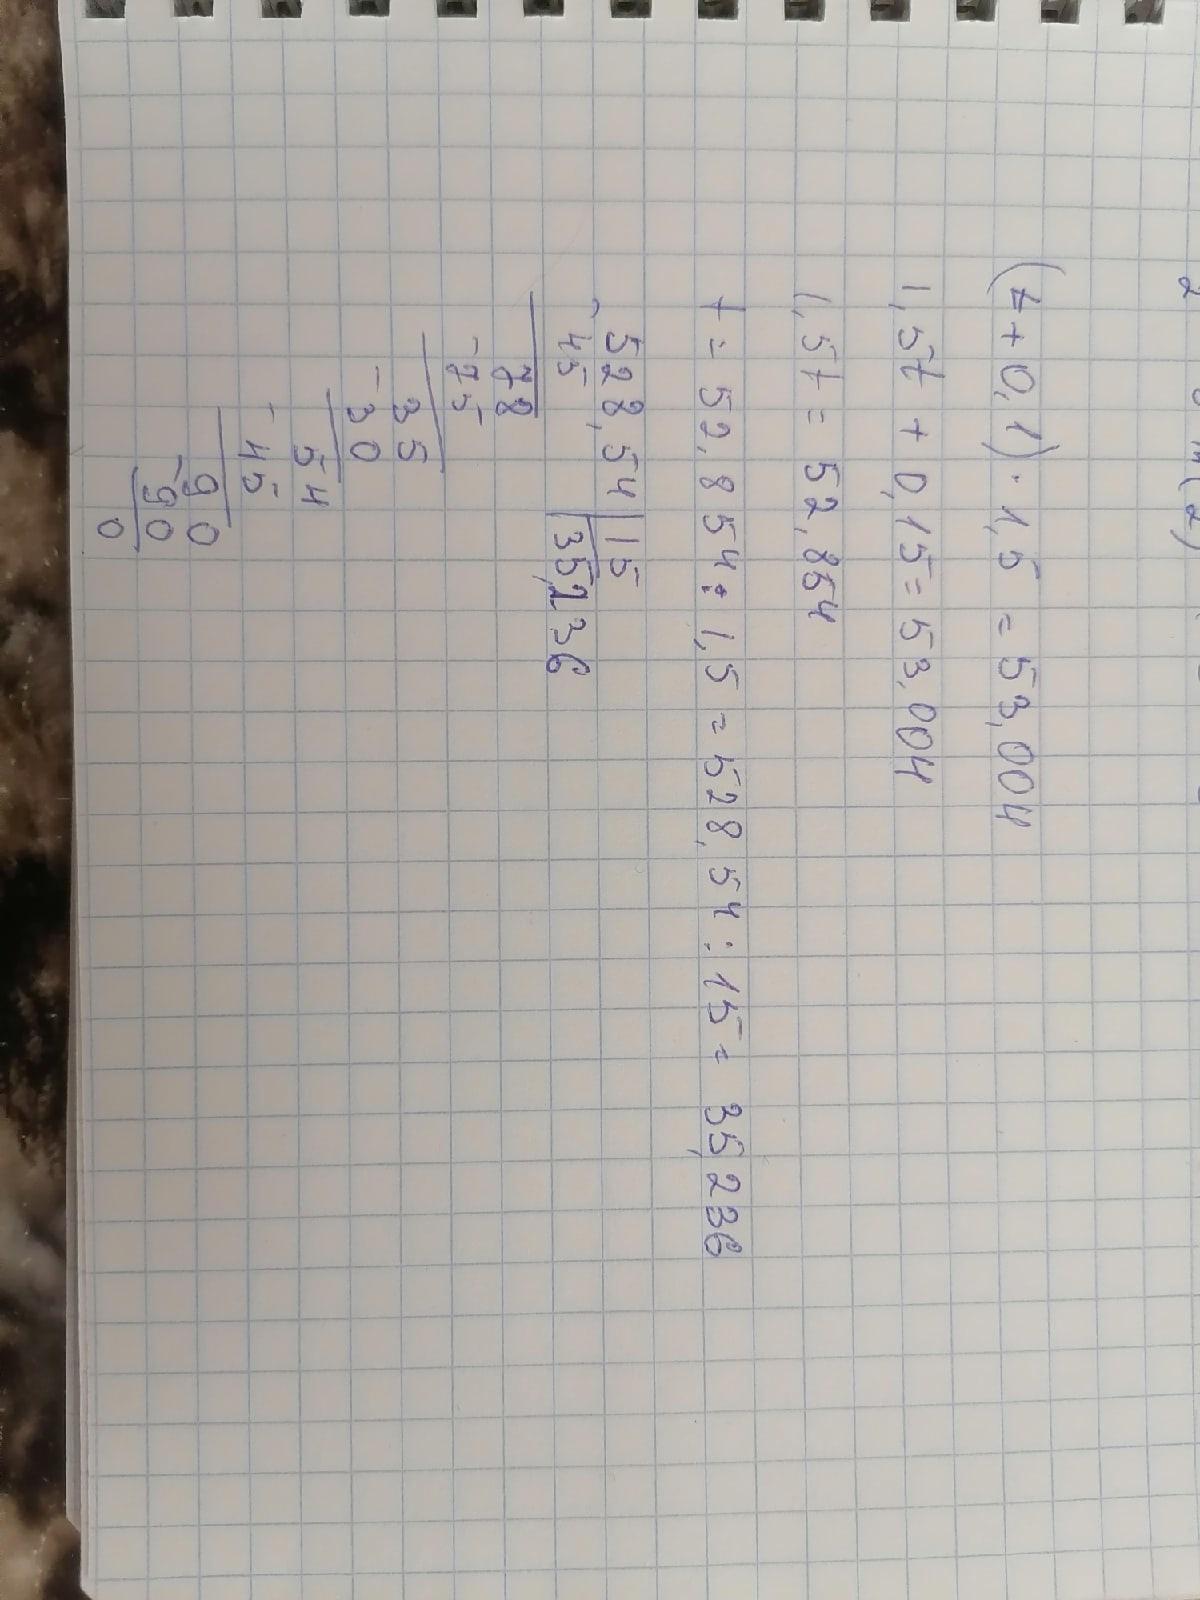 (t+0,1)·1,5 = 53,004
1,5t + 0,15 = 53,004
1,5t = 52,854
t = 52,854 : 1,5 = 528,54 : 15 = 35,236
528,54 | 15
- 45 | 35,236
78
- 75
35
- 30
54
- 45
90
- 90
0